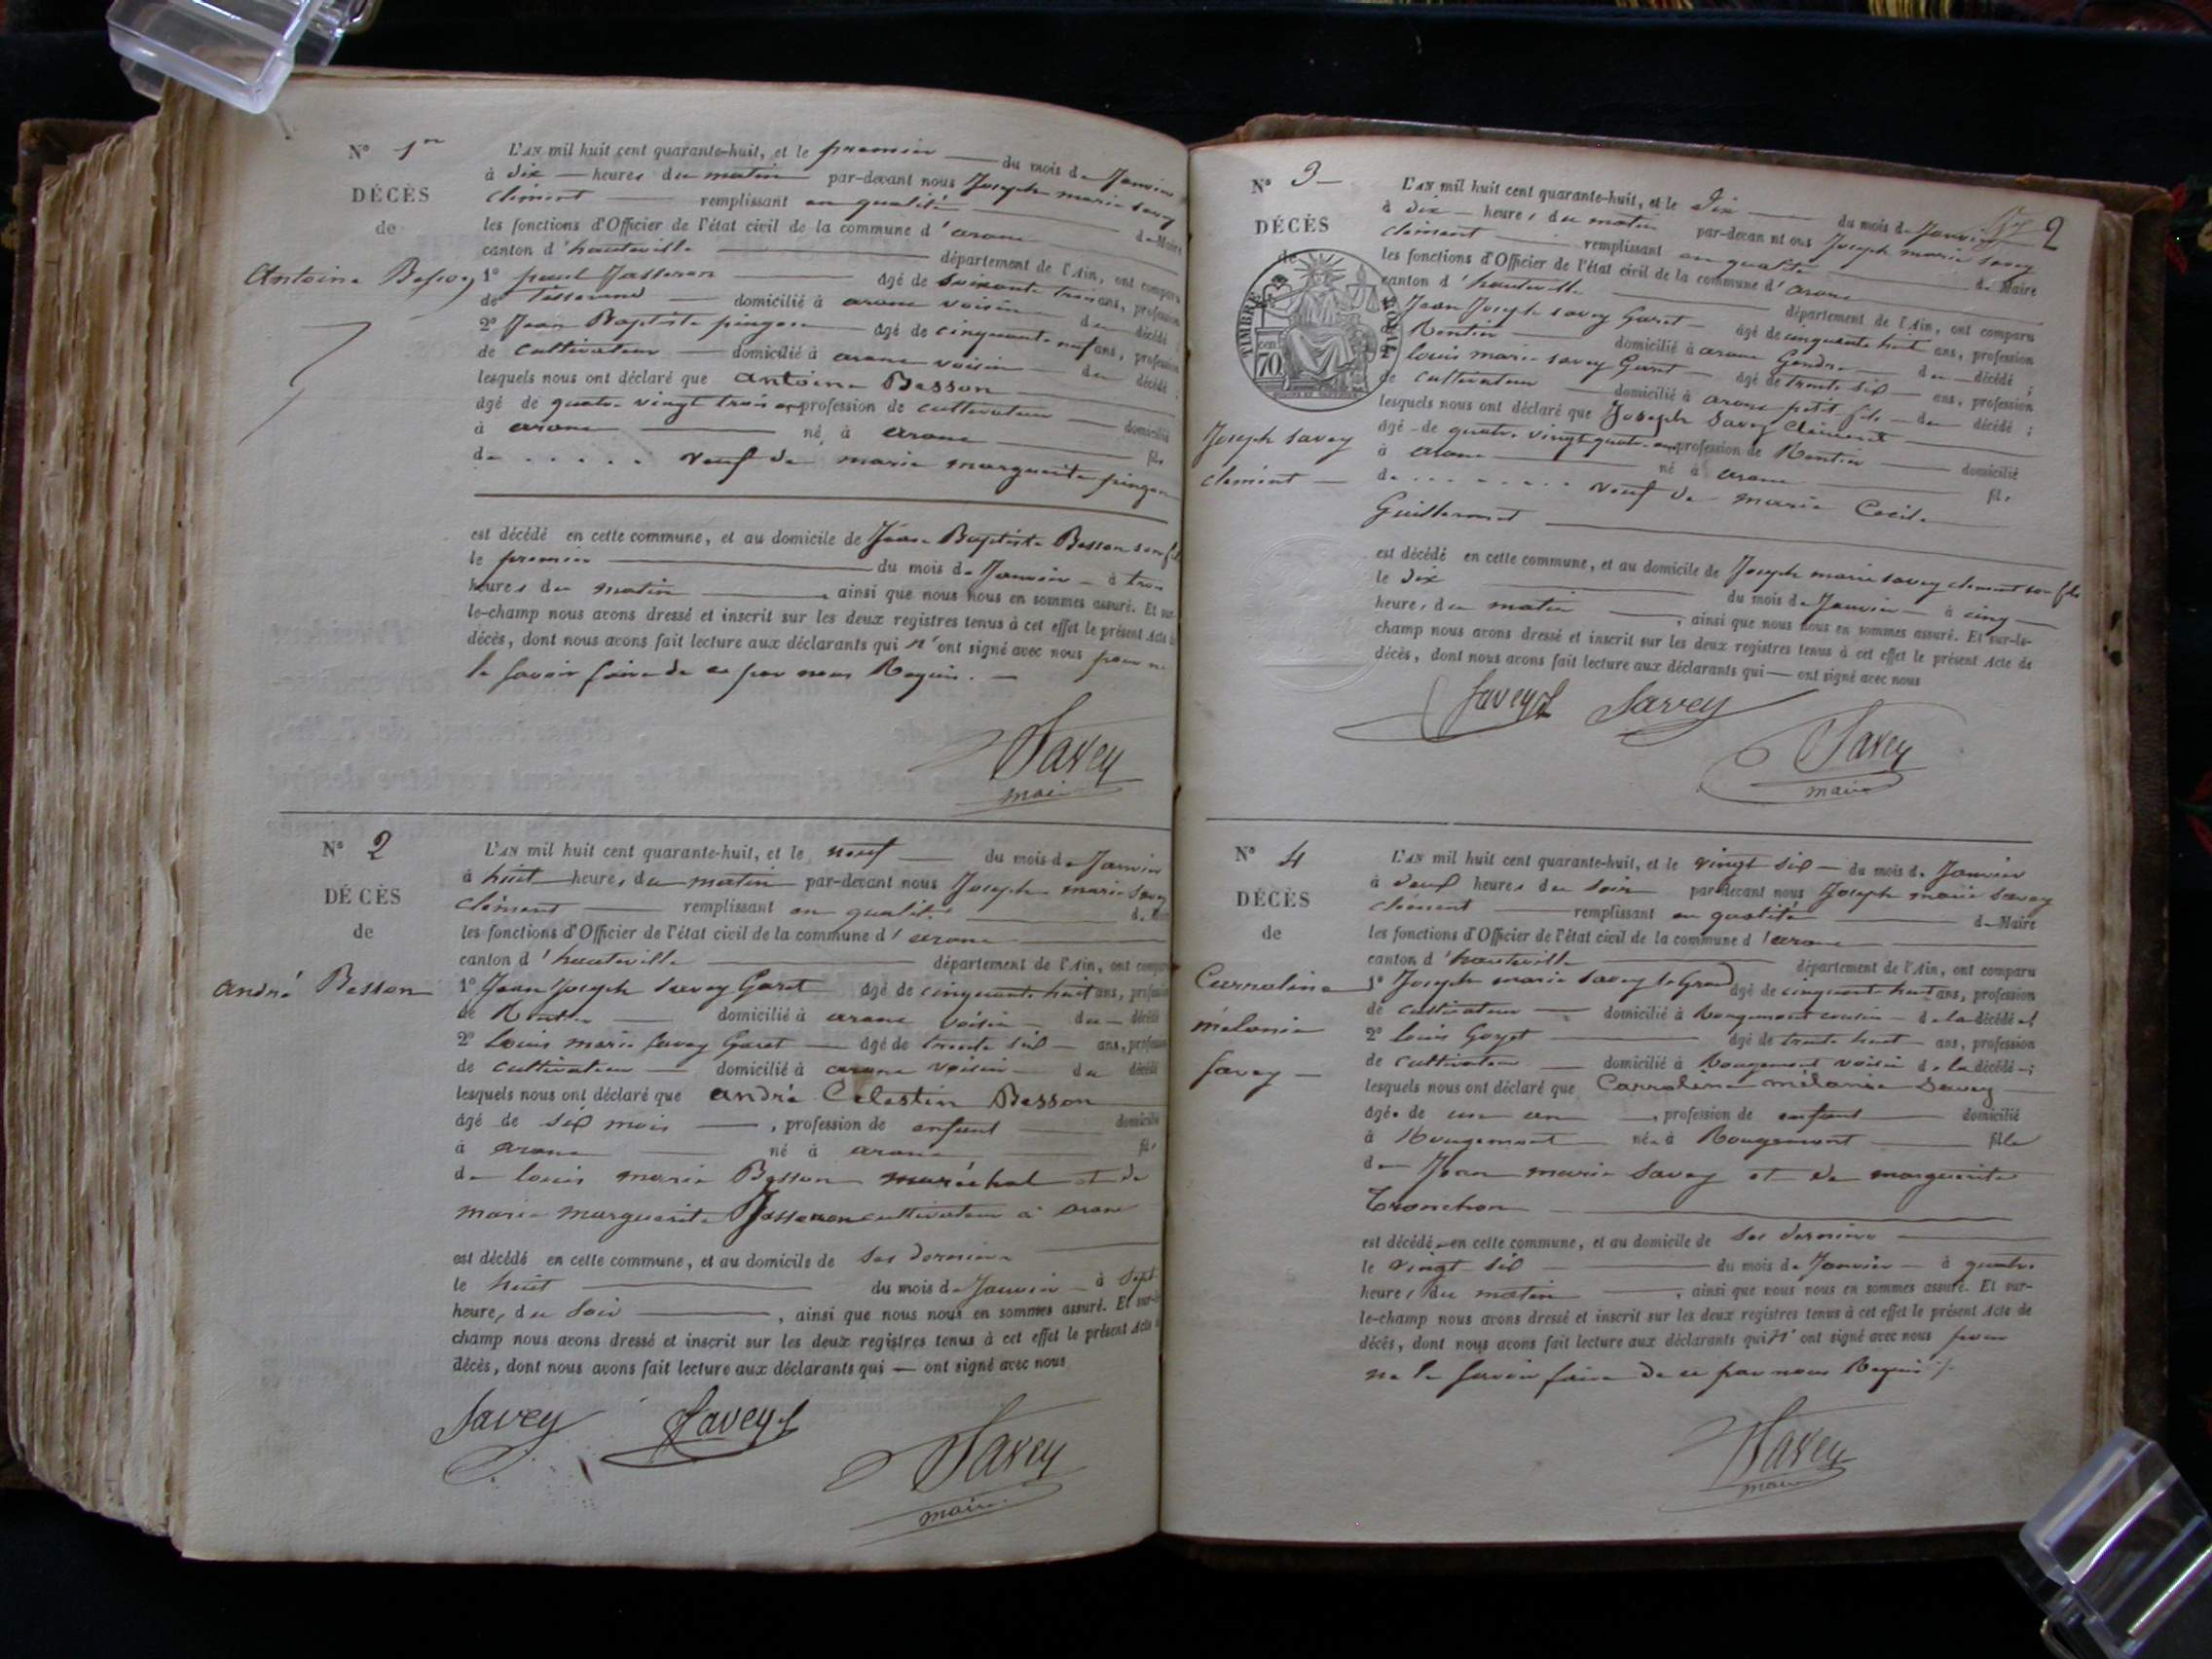 N° 1er
DÉCÈS
de
Antoine Besson
L'AN mil huit cent quarante-huit, et le premier du mois de Janvier
à dix heures du matin par-devant nous Joseph marie Savey
Clément remplissant en qualité de Maire
les fonctions d'Officier de l'état civil de la commune d'arane
canton d'hauteville département de l'Ain, ont comparu
1° paul Jasseron âgé de soixante trois ans, profession
de Tisserand domicilié à arane voisin du décédé ;
2° Jean Baptiste pingon âgé de cinquante neuf ans, profession
de cultivateur domicilié à arane voisin du décédé ;
lesquels nous ont déclaré que antoine Besson
âgé de quatre vingt trois ans profession de cultivateur domicilié
à arane né à arane fils
de . . . . . veuf de marie marguerite pingon
est décédé en cette commune, et au domicile de Jean Baptiste Besson son fils
le premier du mois de Janvier à trois
heures du matin, ainsi que nous nous en sommes assuré. Et sur-
le-champ nous avons dressé et inscrit sur les deux registres tenus à cet effet le présent Acte de
décès, dont nous avons fait lecture aux déclarants qui n'ont signé avec nous pour ne
le savoir faire de ce par nous Requis.
Savey
maire
N° 2
DÉCÈS
de
andré Besson
L'AN mil huit cent quarante-huit, et le neuf du mois de Janvier
à huit heures du matin par-devant nous Joseph marie Savey
Clément remplissant en qualité de Maire
les fonctions d'Officier de l'état civil de la commune d'arane
canton d'hauteville département de l'Ain, ont comparu
1° Jean Joseph Savey Garet âgé de cinquante huit ans, profession
de Rentier domicilié à arane voisin du décédé
2° Louis marie Savey Garet âgé de trente six ans, profession
de cultivateur domicilié à arane voisin du décédé
lesquels nous ont déclaré que andré Celestin Besson
âgé de six mois, profession de enfant domicilié
à arane né à arane fils
de louis marie Besson maréchal et de
marie marguerite Jasseron cultivateur à arane
est décédé en cette commune, et au domicile de ses derniers
le huit du mois de Janvier à sept
heures du soir, ainsi que nous nous en sommes assuré. Et sur-le-
champ nous avons dressé et inscrit sur les deux registres tenus à cet effet le présent Acte de
décès, dont nous avons fait lecture aux déclarants qui — ont signé avec nous
Savey Savey
Savey
maire
2
N° 3
DÉCÈS
de
TIMBRE ROYAL
70
Joseph Savey
clément
L'AN mil huit cent quarante-huit, et le Dix du mois de Janvier
à dix heures du matin par-devant nous Joseph marie Savey
clément remplissant en qualité de Maire
les fonctions d'Officier de l'état civil de la commune d'arane
canton d'hauteville département de l'Ain, ont comparu
Jean Joseph Savey Garet âgé de cinquante huit ans, profession
Rentier domicilié à arane Gendre du décédé ;
louis marie Savey Garet âgé de trente six ans, profession
de cultivateur domicilié à arane petit fils du décédé ;
lesquels nous ont déclaré que Joseph Savey Clément
âgé de quatre vingt quatre ans profession de Rentier domicilié
à arane né à arane fils
de . . . . . . veuf de marie Cecile
Guillermet
est décédé en cette commune, et au domicile de Joseph marie Savey clement son fils
le dix du mois de Janvier à cinq
heures du matin, ainsi que nous nous en sommes assuré. Et sur-le-
champ nous avons dressé et inscrit sur les deux registres tenus à cet effet le présent Acte de
décès, dont nous avons fait lecture aux déclarants qui — ont signé avec nous
Savey Savey
Savey
maire
N° 4
DÉCÈS
de
Carroline
mélanie
Savey
L'AN mil huit cent quarante-huit, et le vingt six du mois de Janvier
à deux heures du soir par-devant nous Joseph marie Savey
clément remplissant en qualité de Maire
les fonctions d'Officier de l'état civil de la commune d'arane
canton d'hauteville département de l'Ain, ont comparu
1° Joseph marie Savey le Grand âgé de cinquante huit ans, profession
de cultivateur domicilié à Rougemont cousin de la décédée
2° louis Goyet âgé de trente huit ans, profession
de cultivateur domicilié à Rougemont voisin de la décédée ;
lesquels nous ont déclaré que Carroline mélanie Savey
âgée de un an, profession de enfant domicilié
à Rougemont née à Rougemont fille
de Jean marie Savey et de marguerite
Tronchon
est décédée en cette commune, et au domicile de ses derniers
le vingt six du mois de Janvier à quatre
heures du matin, ainsi que nous nous en sommes assuré. Et sur-
le-champ nous avons dressé et inscrit sur les deux registres tenus à cet effet le présent Acte de
décès, dont nous avons fait lecture aux déclarants qui n'ont signé avec nous pour
ne le savoir faire de ce par nous Requis
Savey
maire